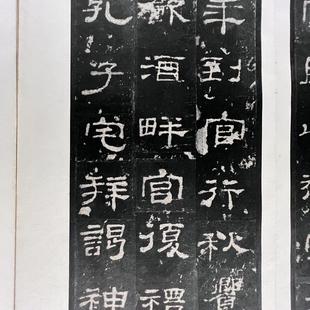 年到官行秋饗
飲酒畔宮復禮
孔子宅拜謁神